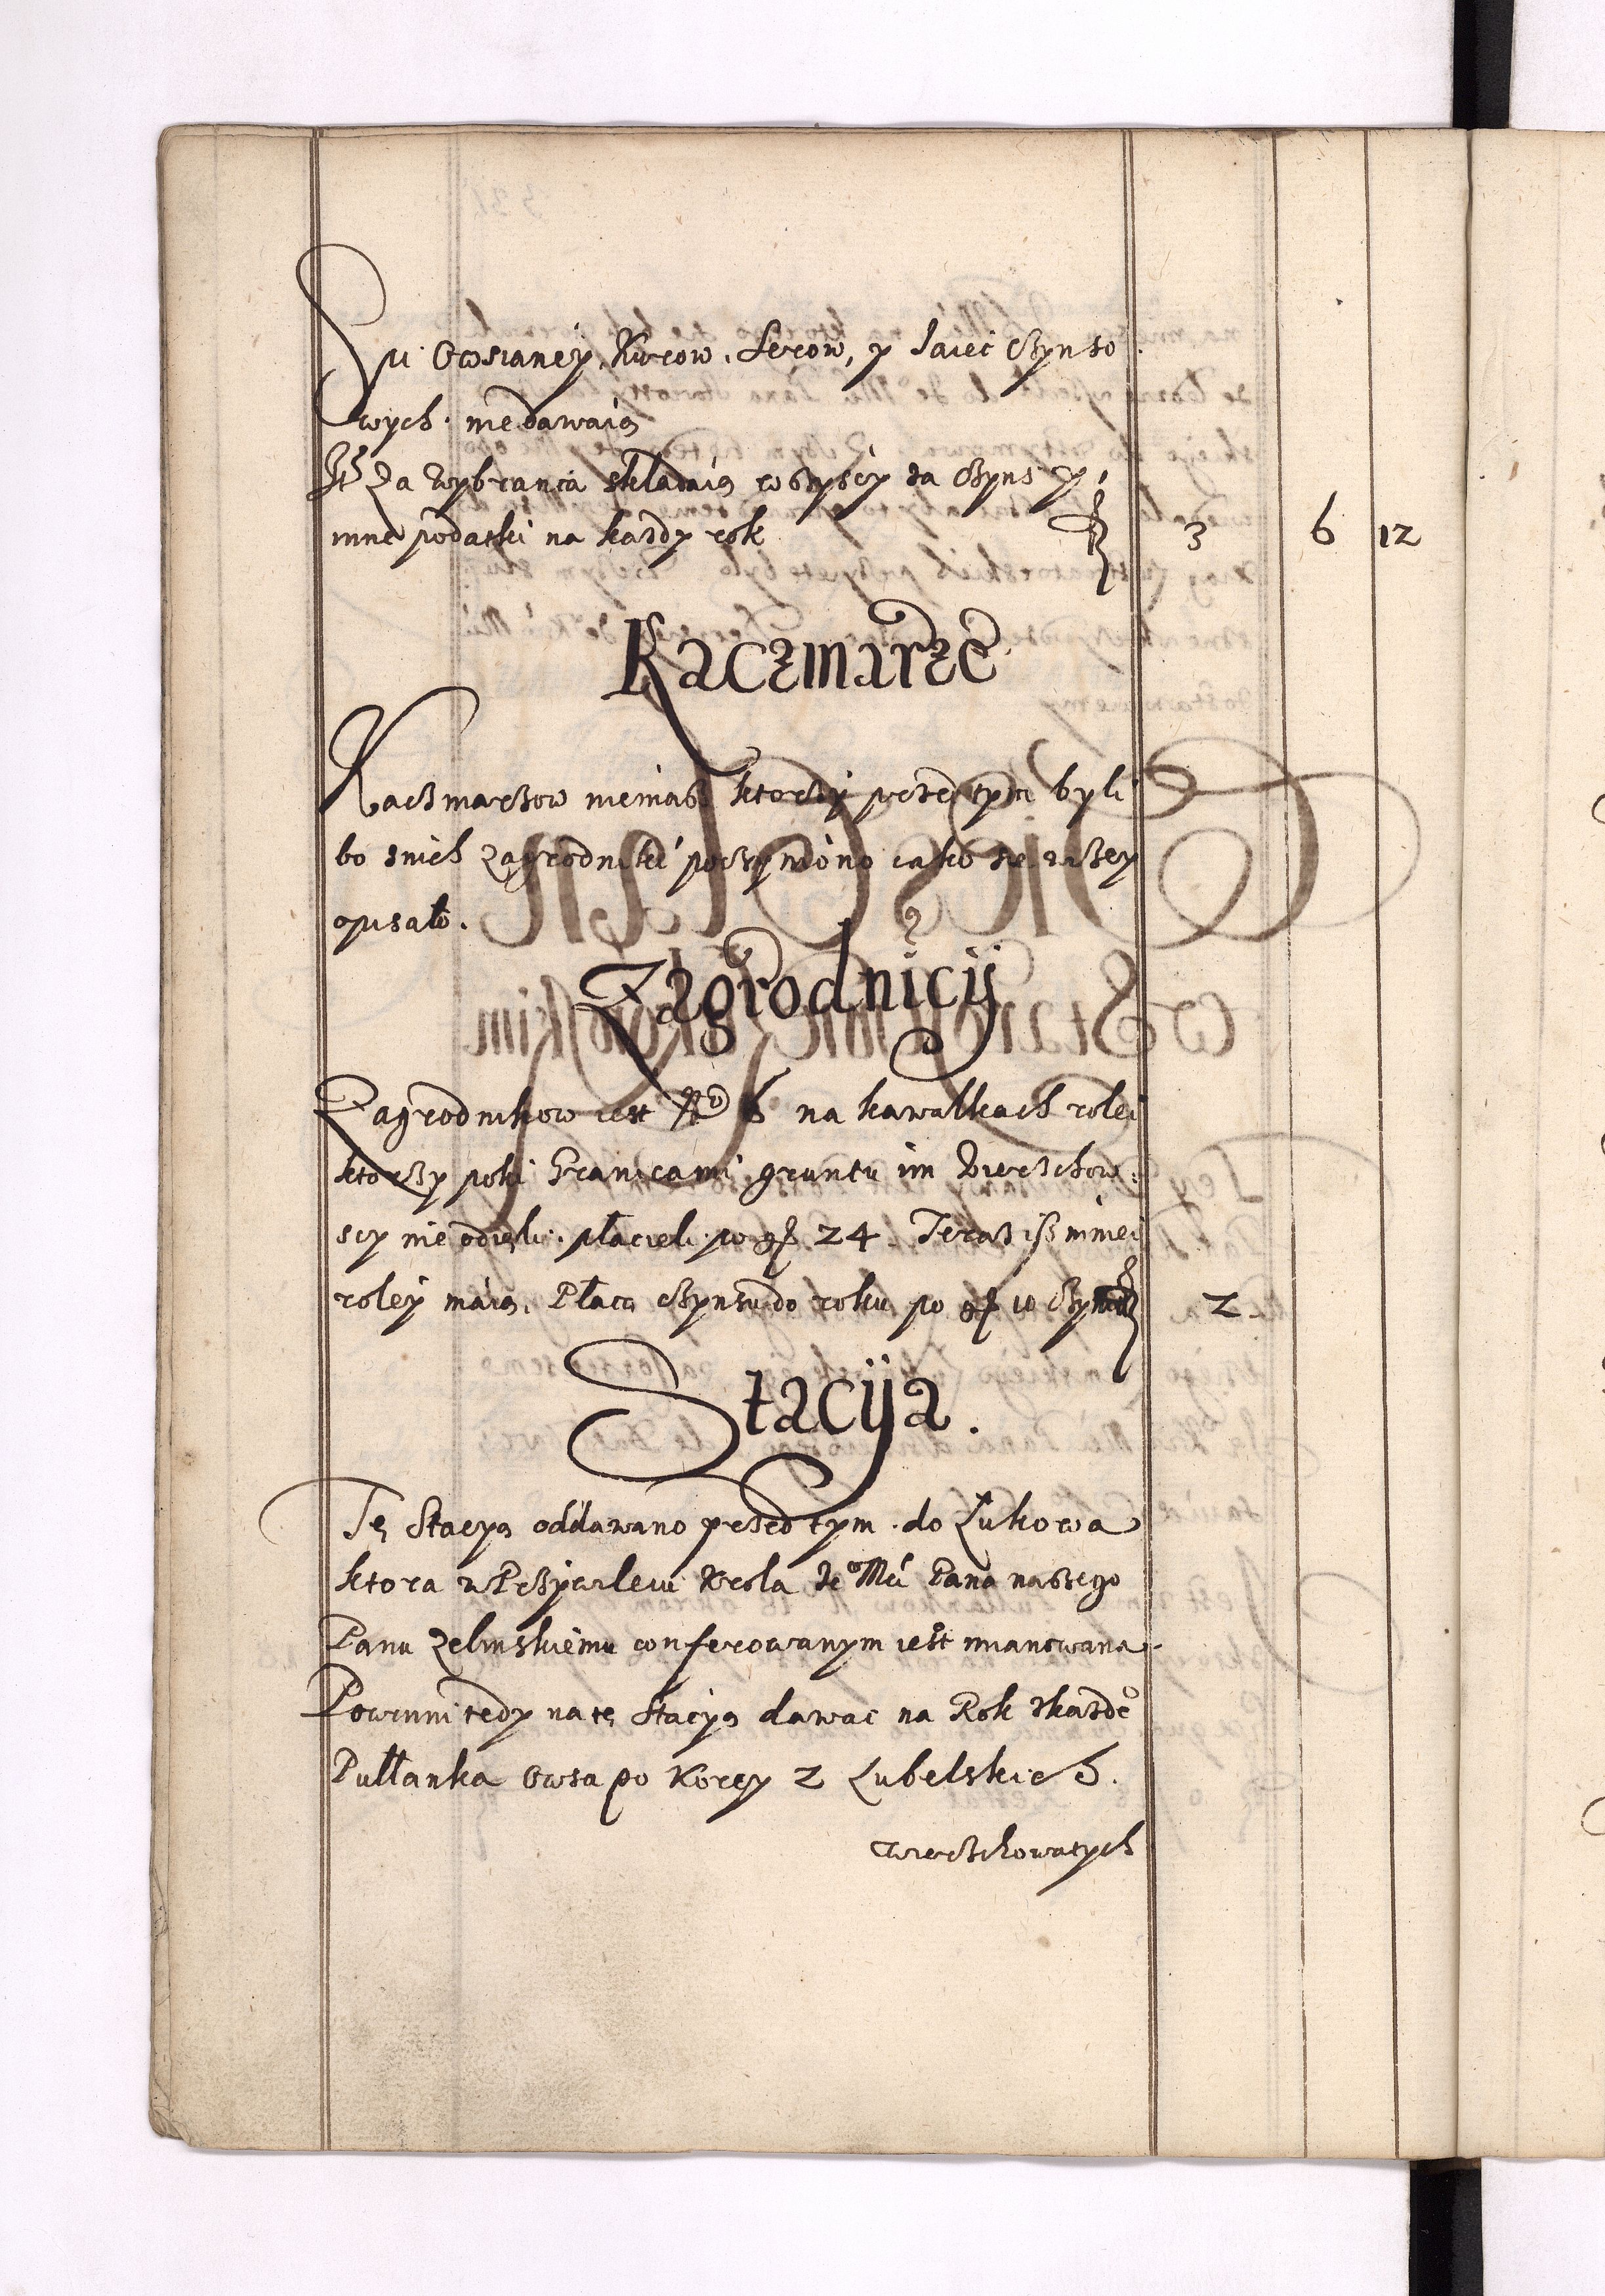 Spi Owsianey, Kurow, Serow, y Jaiec Czynszo
wych. nie dawaią
It Za wybrańca składaią wszyscy za Czynsz y
inne podatki na każdy rok f 3 6 12
Kaczmarze
Kaczmarzow niemasz ktorzy przed tym byli
bo znich zagrodniki poczyniono iako się niżey
opisało.
Zagrodnicij
Zagrodnikow iest No 6 na kawałkach rolei
ktorzy poki Granicami gruntu im Wierzchow.
scy nie odięli. płacieli po gr 24. Teraz iż mniei
roley maią. Płacą Czynszu do roku po gr 10 Czyni f 2
Stacija.
Tę Stacyą oddawano przed tym do Łukowa
ktora w Przywileiu Krola Je° Mci Pana naszego
Panu Zelinskiemu conferowanym iest mianowana.
Powinni tedy na tę Stacyą dawac na Rok zkażde°
Pułłanka Owsa po Korcy 2 Lubelskich.
wierzchowatych